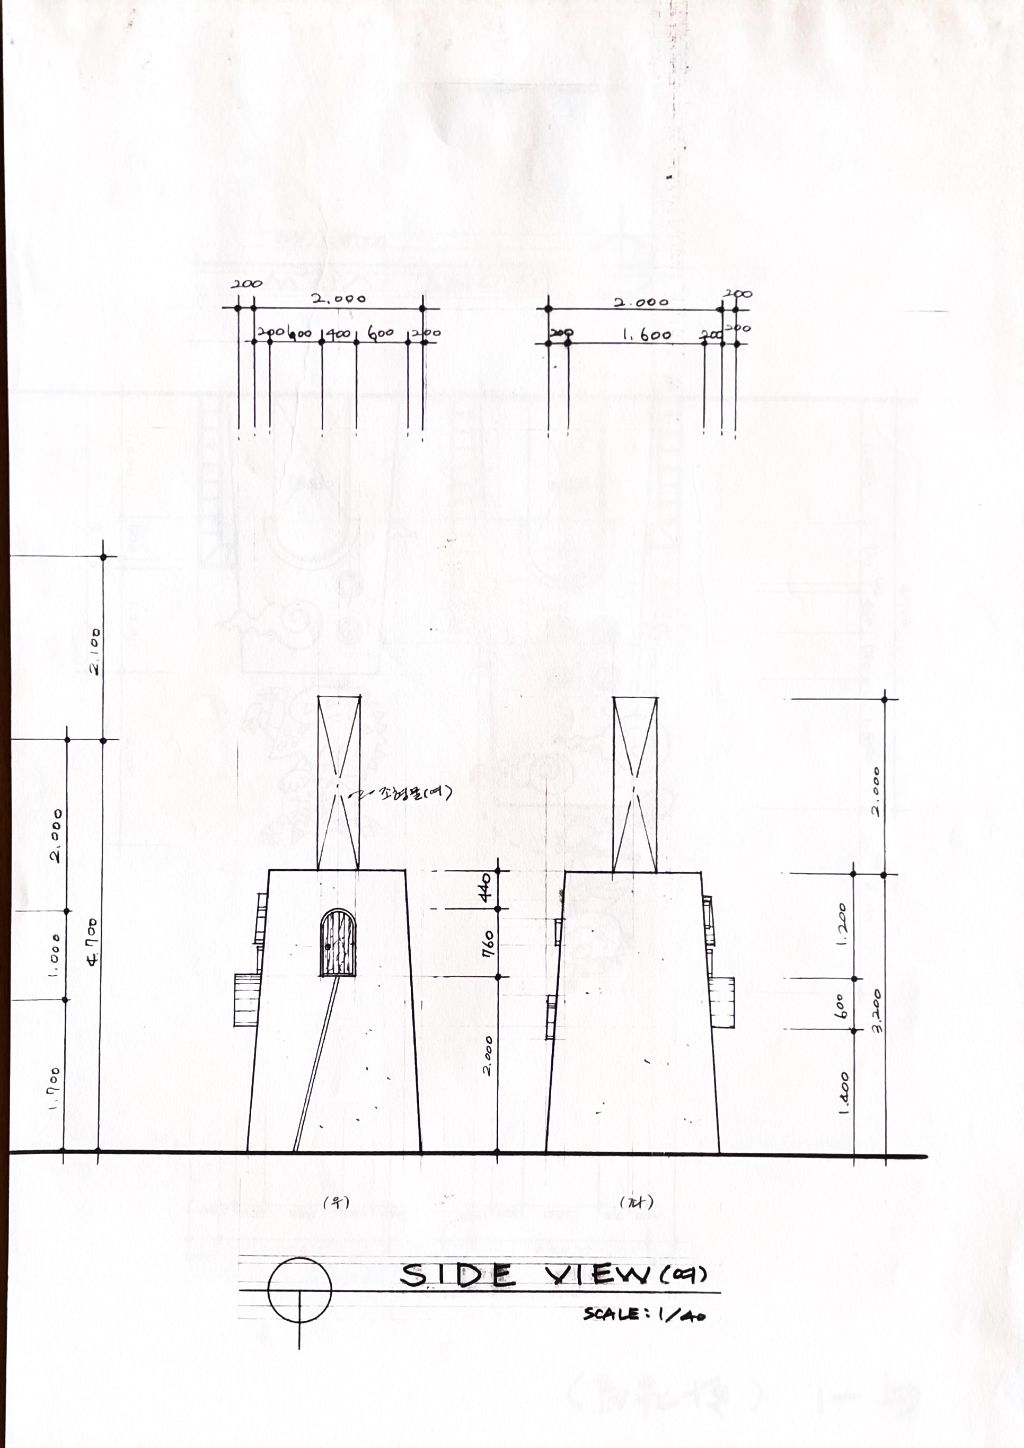 200
2.000
200 600 400 600 200
2.000
200
200 1.600 200 200
2.100
2.000
4.700
1.000
1.700
조형물(여)
440
760
2.000
2.000
1.200
600
3.200
1.400
(우)
(좌)
SIDE VIEW(여)
SCALE: 1/40